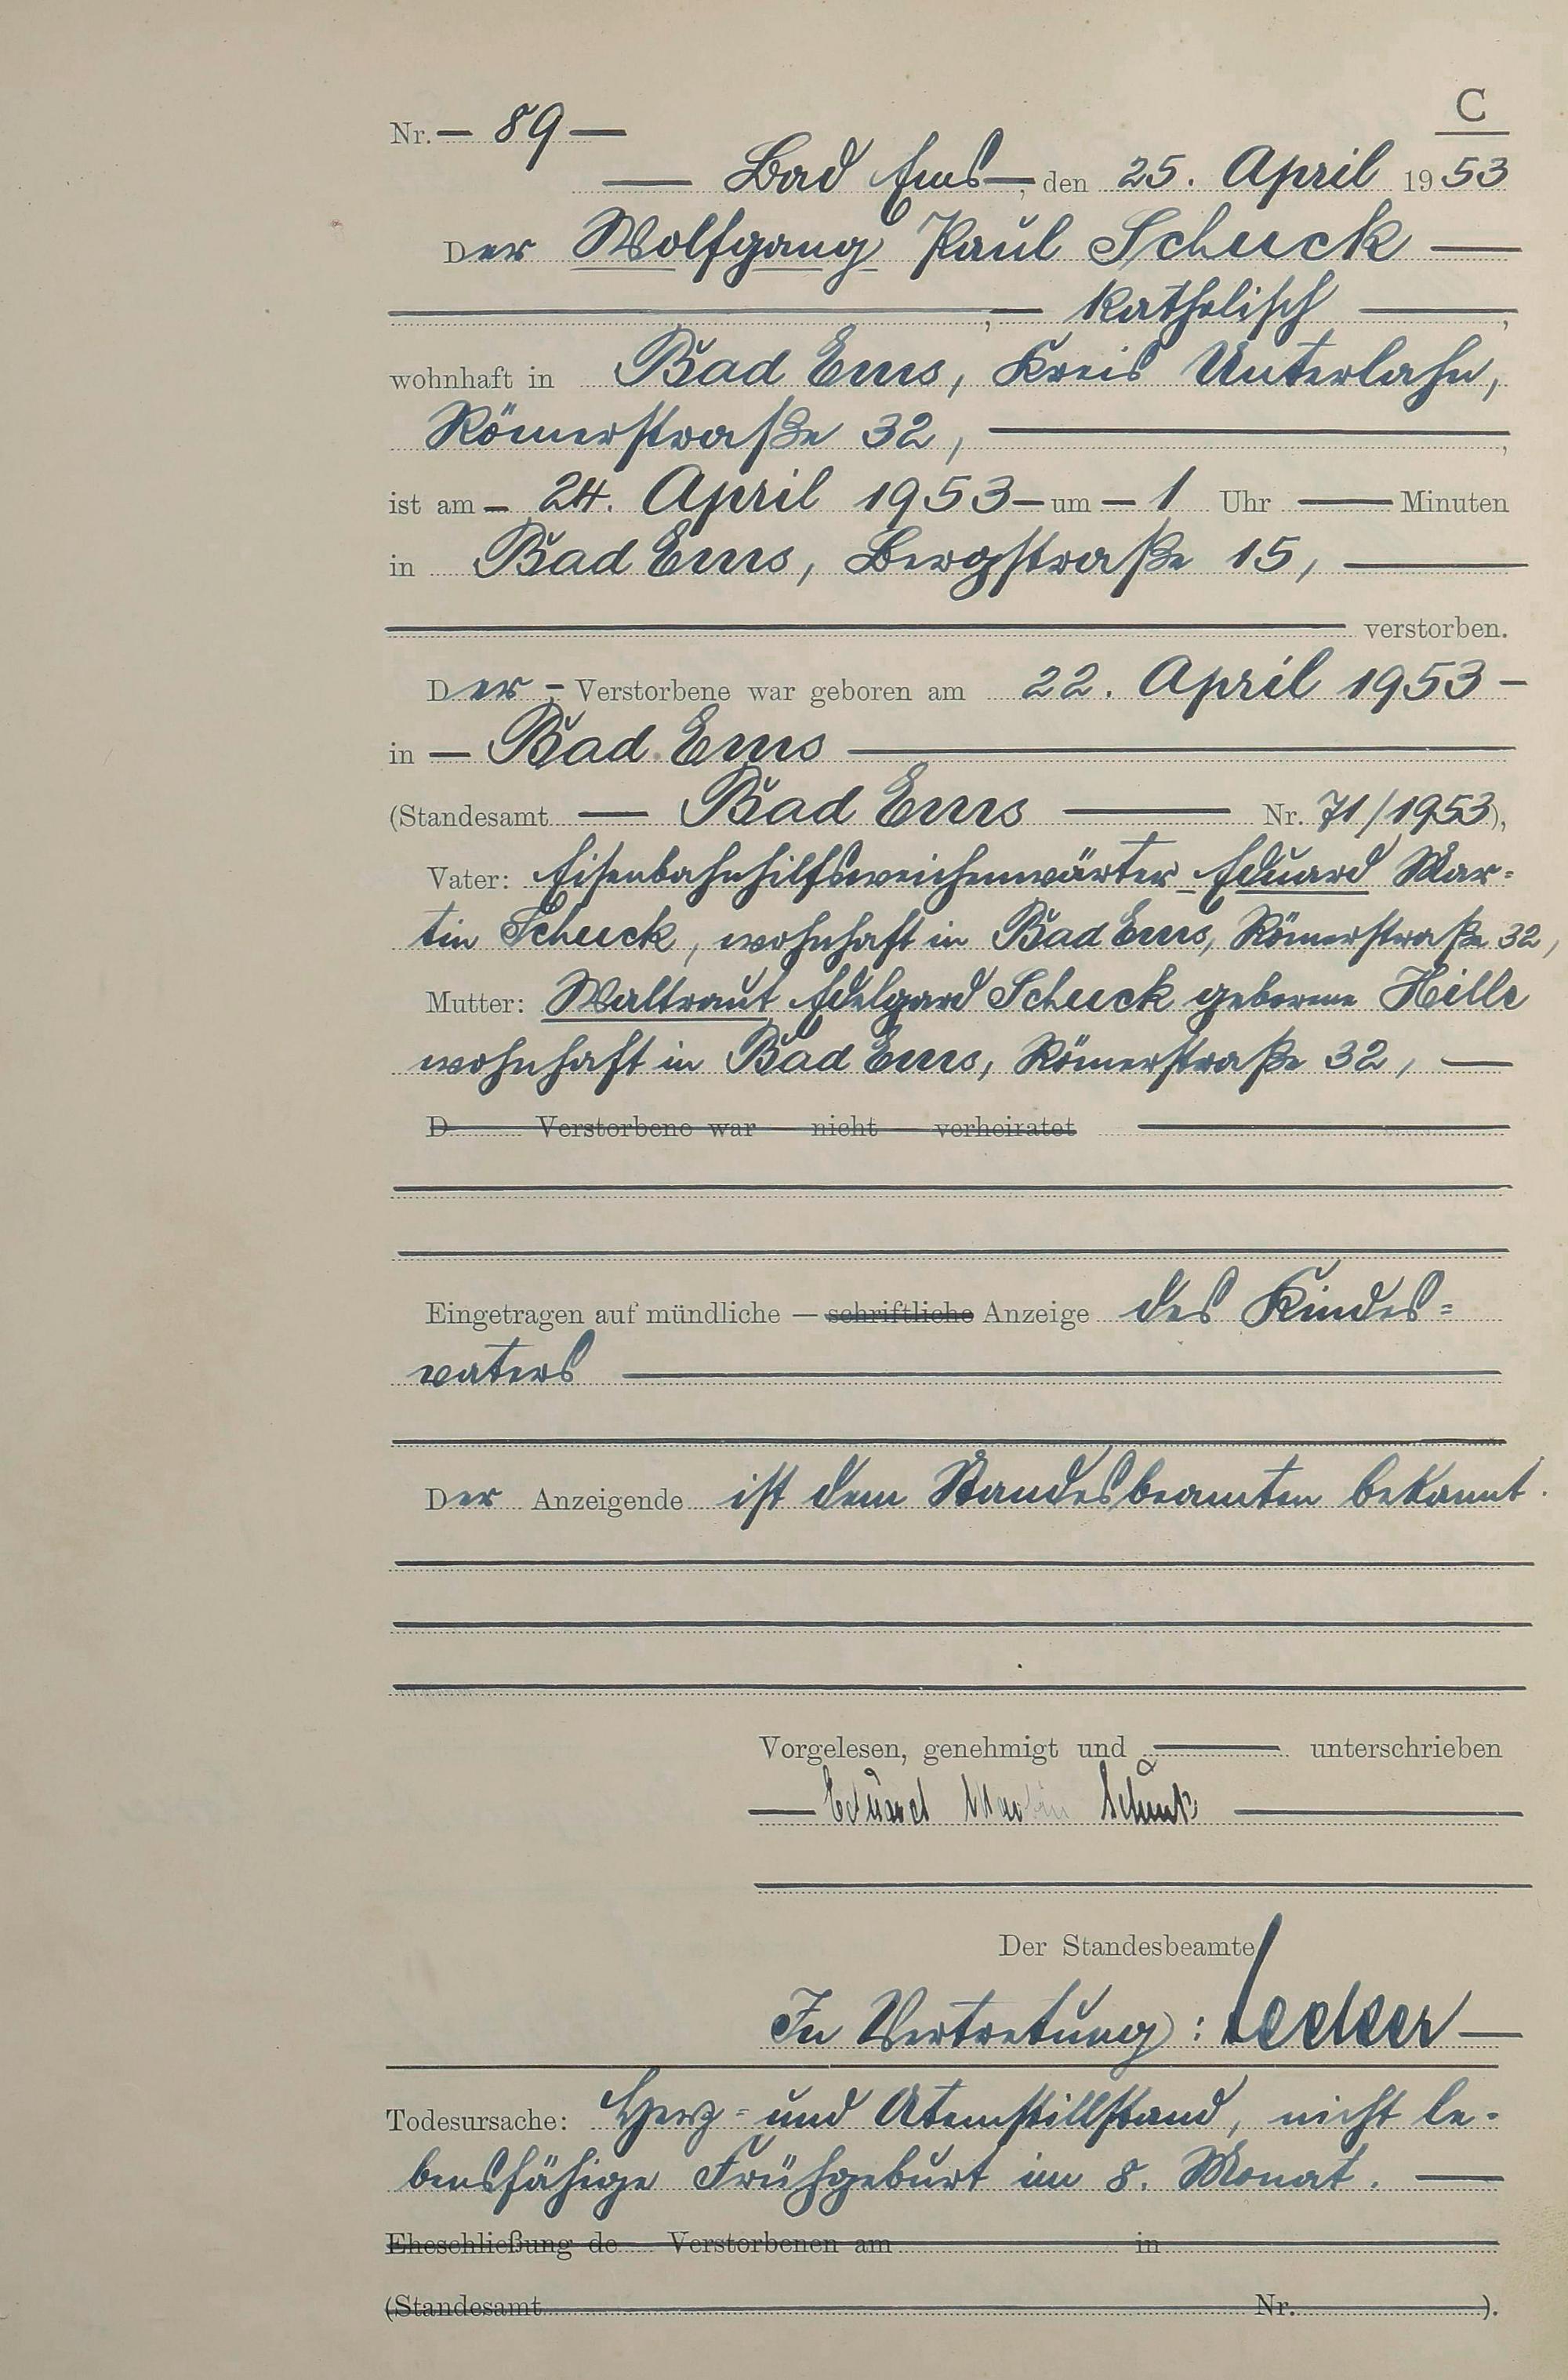 C
Nr. — 89 —
— Bad Ems —, den 25. April 1953
Der Wolfgang Paul Schuck —
—, — katholisch —,
wohnhaft in Bad Ems, Kreis Unterlahn,
Römerstraße 32, —,
ist am — 24. April 1953 — um — 1 Uhr — Minuten
in Bad Ems, Bergstraße 15, —
— verstorben.
Der — Verstorbene war geboren am 22. April 1953 —
in — Bad Ems —
(Standesamt — Bad Ems — Nr. 71/1953),
Vater: Eisenbahnhilfsweichenwärter Eduard Mar=
tin Schuck, wohnhaft in Bad Ems, Römerstraße 32,
Mutter: Waltraut Edelgard Schuck geborene Hille
wohnhaft in Bad Ems, Römerstraße 32, —
D Verstorbene war nicht verheiratet —
Eingetragen auf mündliche — schriftliche Anzeige des Kindes=
vaters —
Der Anzeigende ist dem Standesbeamten bekannt.
Vorgelesen, genehmigt und — unterschrieben
— Eduard Martin Schuck —
Der Standesbeamte
In Vertretung: —
Todesursache: Herz= und Atemstillstand, nicht le-
bensfähige Frühgeburt im 8. Monat. —
Eheschließung de Verstorbenen am in
(Standesamt Nr. ).